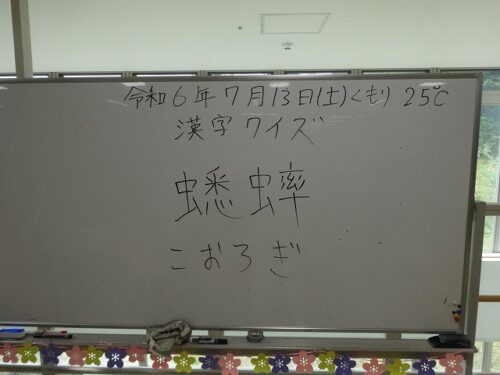 令和6年7月13日(土)くもり 25℃
漢字クイズ
蟋蟀
こおろぎ